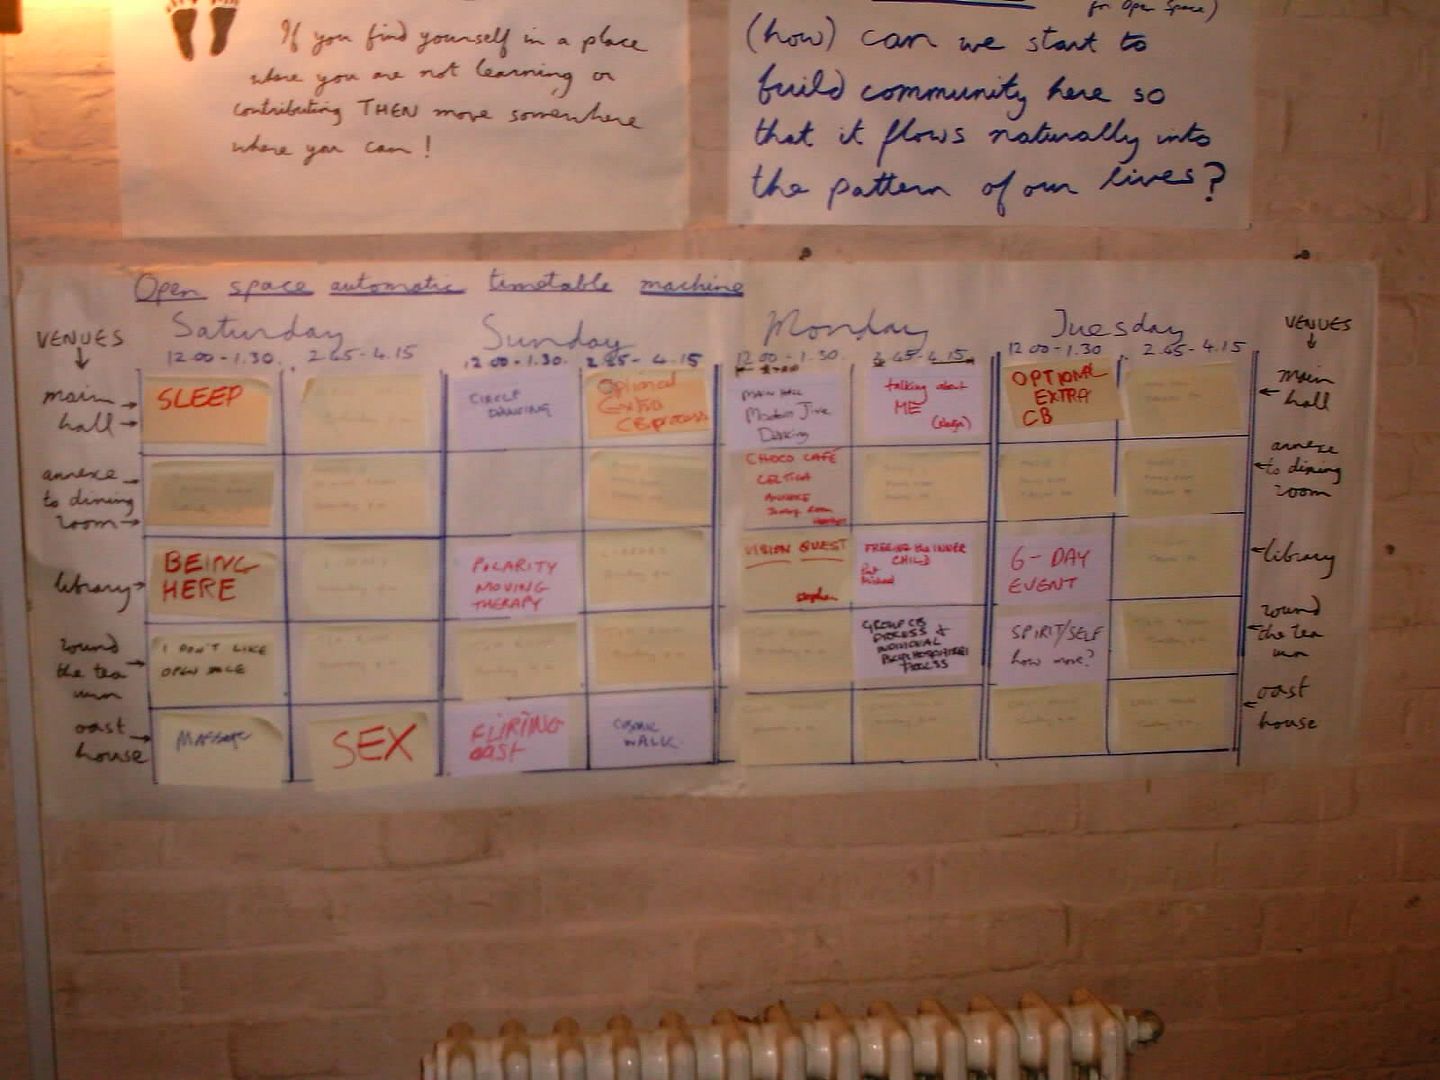 If you find yourself in a place
where you are not learning or
contributing THEN move somewhere
where you can!
for Open Space)
(how) can we start to
build community here so
that it flows naturally into
the pattern of our lives?
Open space automatic timetable machine
VENUES
Saturday Sunday Monday Tuesday
VENUES
12.00-1.30. 2.45-4.15 12.00-1.30. 2.45-4.15 12.00-1.30. 2.45-4.15 12.00-1.30 2.45-4.15
main
hall
SLEEP
CIRCLE
DANCING
Optional
Extra
CB process
MAIN HALL
Modern Jive
Dancing
talking about
ME
OPTIONAL
EXTRA
CB
main
hall
annexe
to dining
room
CHOCO CAFÉ
CELTICA
ANNEXE
Dining Room
annexe
to dining
room
library
BEING
HERE
POLARITY
MOVING
THERAPY
VISION QUEST
Stephen
FREEING the INNER
CHILD
6-DAY
EVENT
library
round
the tea
urn
I DON'T LIKE
OPEN SPACE
GROUP CB
PROCESS &
INDIVIDUAL
PROCESS
SPIRIT/SELF
how move?
round
the tea
urn
oast
house
MASSAGE
SEX
FLIRTING
oast
COSMIC
WALK.
oast
house